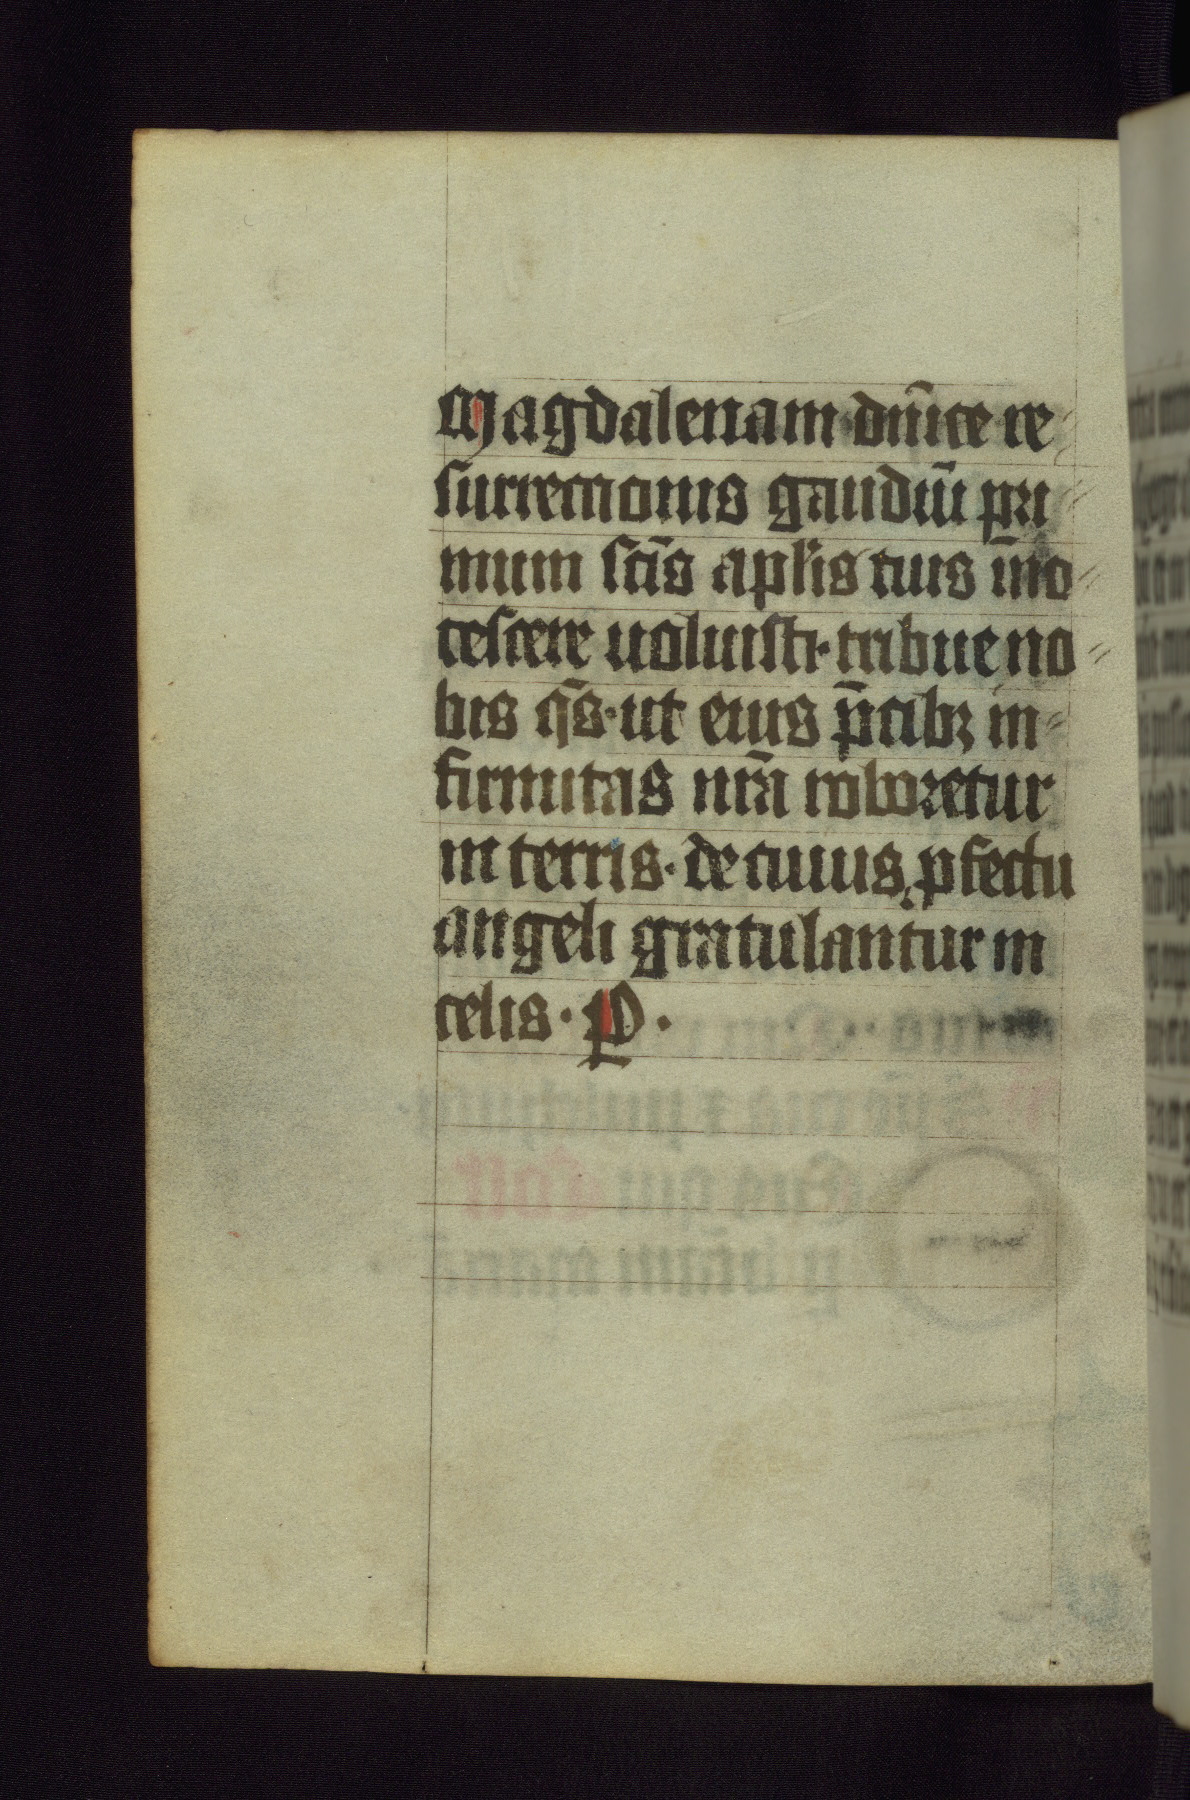 Magdalenam dn̄ice re⸗
surrectionis gaudiū pri⸗
mum sc̄is apl̄is tuis īno⸗
tescere uoluisti· tribue no⸗
bis qs̄· ut eius p̄cibꝫ in⸗
firmitas nr̄a roboretur
in terris· de cuius ꝓfectu
angeli gratulantur in
celis· P·